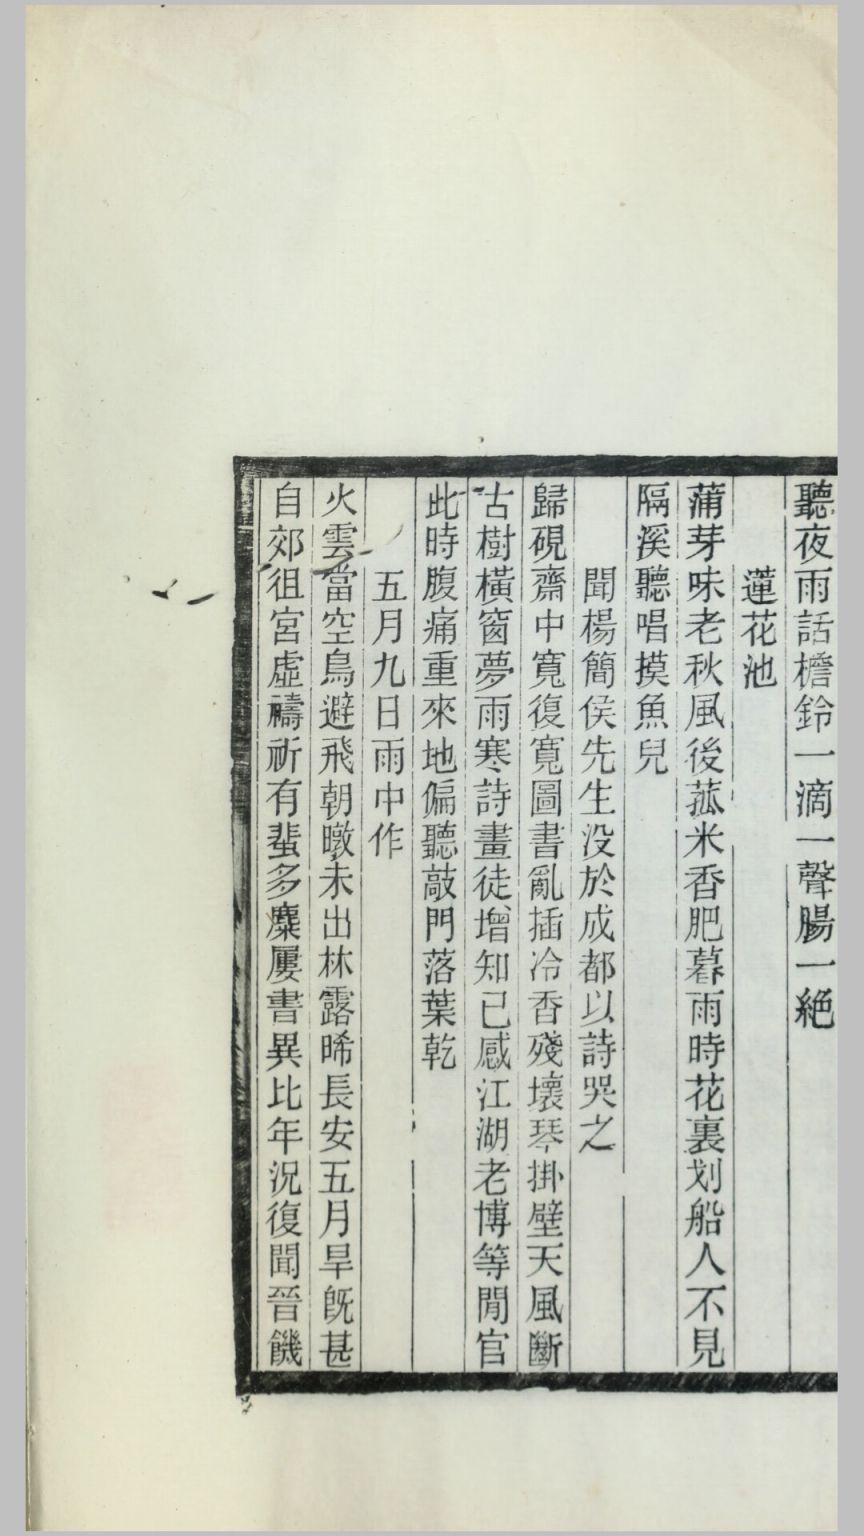 聽夜雨話檐鈴一滴一聲腸一絕
蓮花池
蒲芽味老秋風後菰米香肥暮雨時花裏划船人不見
隔溪聽唱摸魚兒
聞楊簡侯先生没於成都以詩哭之
歸硯齋中寬復寬圖書亂插冷香殘壞琴掛壁天風斷
古樹橫窗夢雨寒詩畫徒增知已感江湖老博等閒官
此時腹痛重來地偏聽敲門落葉乾
五月九日雨中作
火雲當空鳥避飛朝暾未出林露晞長安五月旱旣甚
自郊徂宮虛禱祈有蜚多麋屢書異比年況復聞晉饑